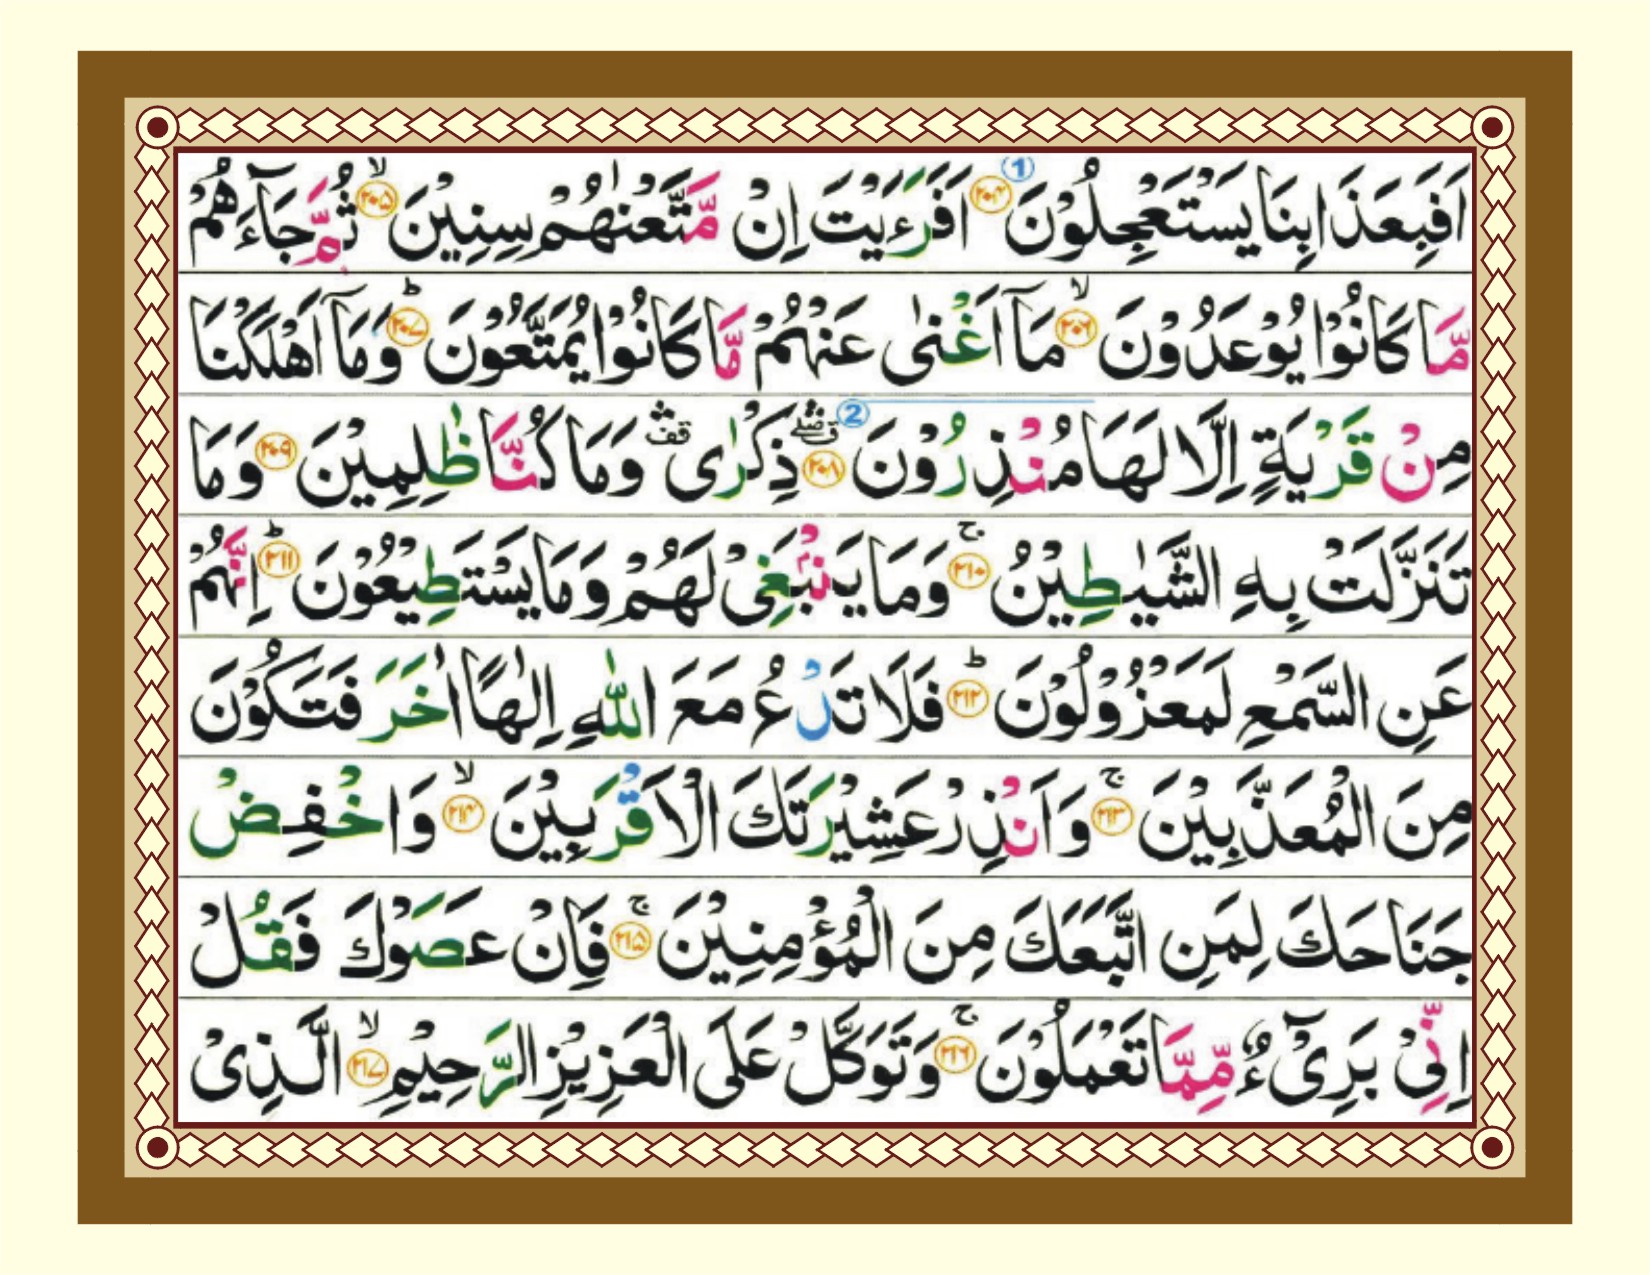 اَفَبِعَذَابِنَا يَسْتَعْجِلُوْنَ ﴿۲۰۴﴾ (1) اَفَرَءَيْتَ اِنْ مَّتَّعْنٰهُمْ سِنِيْنَ ۙ﴿۲۰۵﴾ ثُمَّ جَآءَهُمْ
مَّا كَانُوْا يُوْعَدُوْنَ ۙ﴿۲۰۶﴾ مَآ اَغْنٰى عَنْهُمْ مَّا كَانُوْا يُمَتَّعُوْنَ ؕ﴿۲۰۷﴾ وَمَآ اَهْلَكْنَا
مِنْ قَرْيَةٍ اِلَّا لَهَا مُنْذِرُوْنَ (2) ﴿۲۰۸﴾ ذِكْرٰى ۛ وَمَا كُنَّا ظٰلِمِيْنَ ﴿۲۰۹﴾ وَمَا
تَنَزَّلَتْ بِهِ الشَّيٰطِيْنُ ۚ﴿۲۱۰﴾ وَمَا يَنْۢبَغِىْ لَهُمْ وَمَا يَسْتَطِيْعُوْنَ ؕ﴿۲۱۱﴾ اِنَّهُمْ
عَنِ السَّمْعِ لَمَعْزُوْلُوْنَ ؕ﴿۲۱۲﴾ فَلَا تَدْعُ مَعَ اللّٰهِ اِلٰهًا اٰخَرَ فَتَكُوْنَ
مِنَ الْمُعَذَّبِيْنَ ۚ﴿۲۱۳﴾ وَاَنْذِرْ عَشِيْرَتَكَ الْاَقْرَبِيْنَ ۙ﴿۲۱۴﴾ وَاخْفِضْ
جَنَاحَكَ لِمَنِ اتَّبَعَكَ مِنَ الْمُؤْمِنِيْنَ ۚ﴿۲۱۵﴾ فَاِنْ عَصَوْكَ فَقُلْ
اِنِّىْ بَرِىْٓءٌ مِّمَّا تَعْمَلُوْنَ ۚ﴿۲۱۶﴾ وَتَوَكَّلْ عَلَى الْعَزِيْزِ الرَّحِيْمِ ۙ﴿۲۱۷﴾ الَّذِىْ